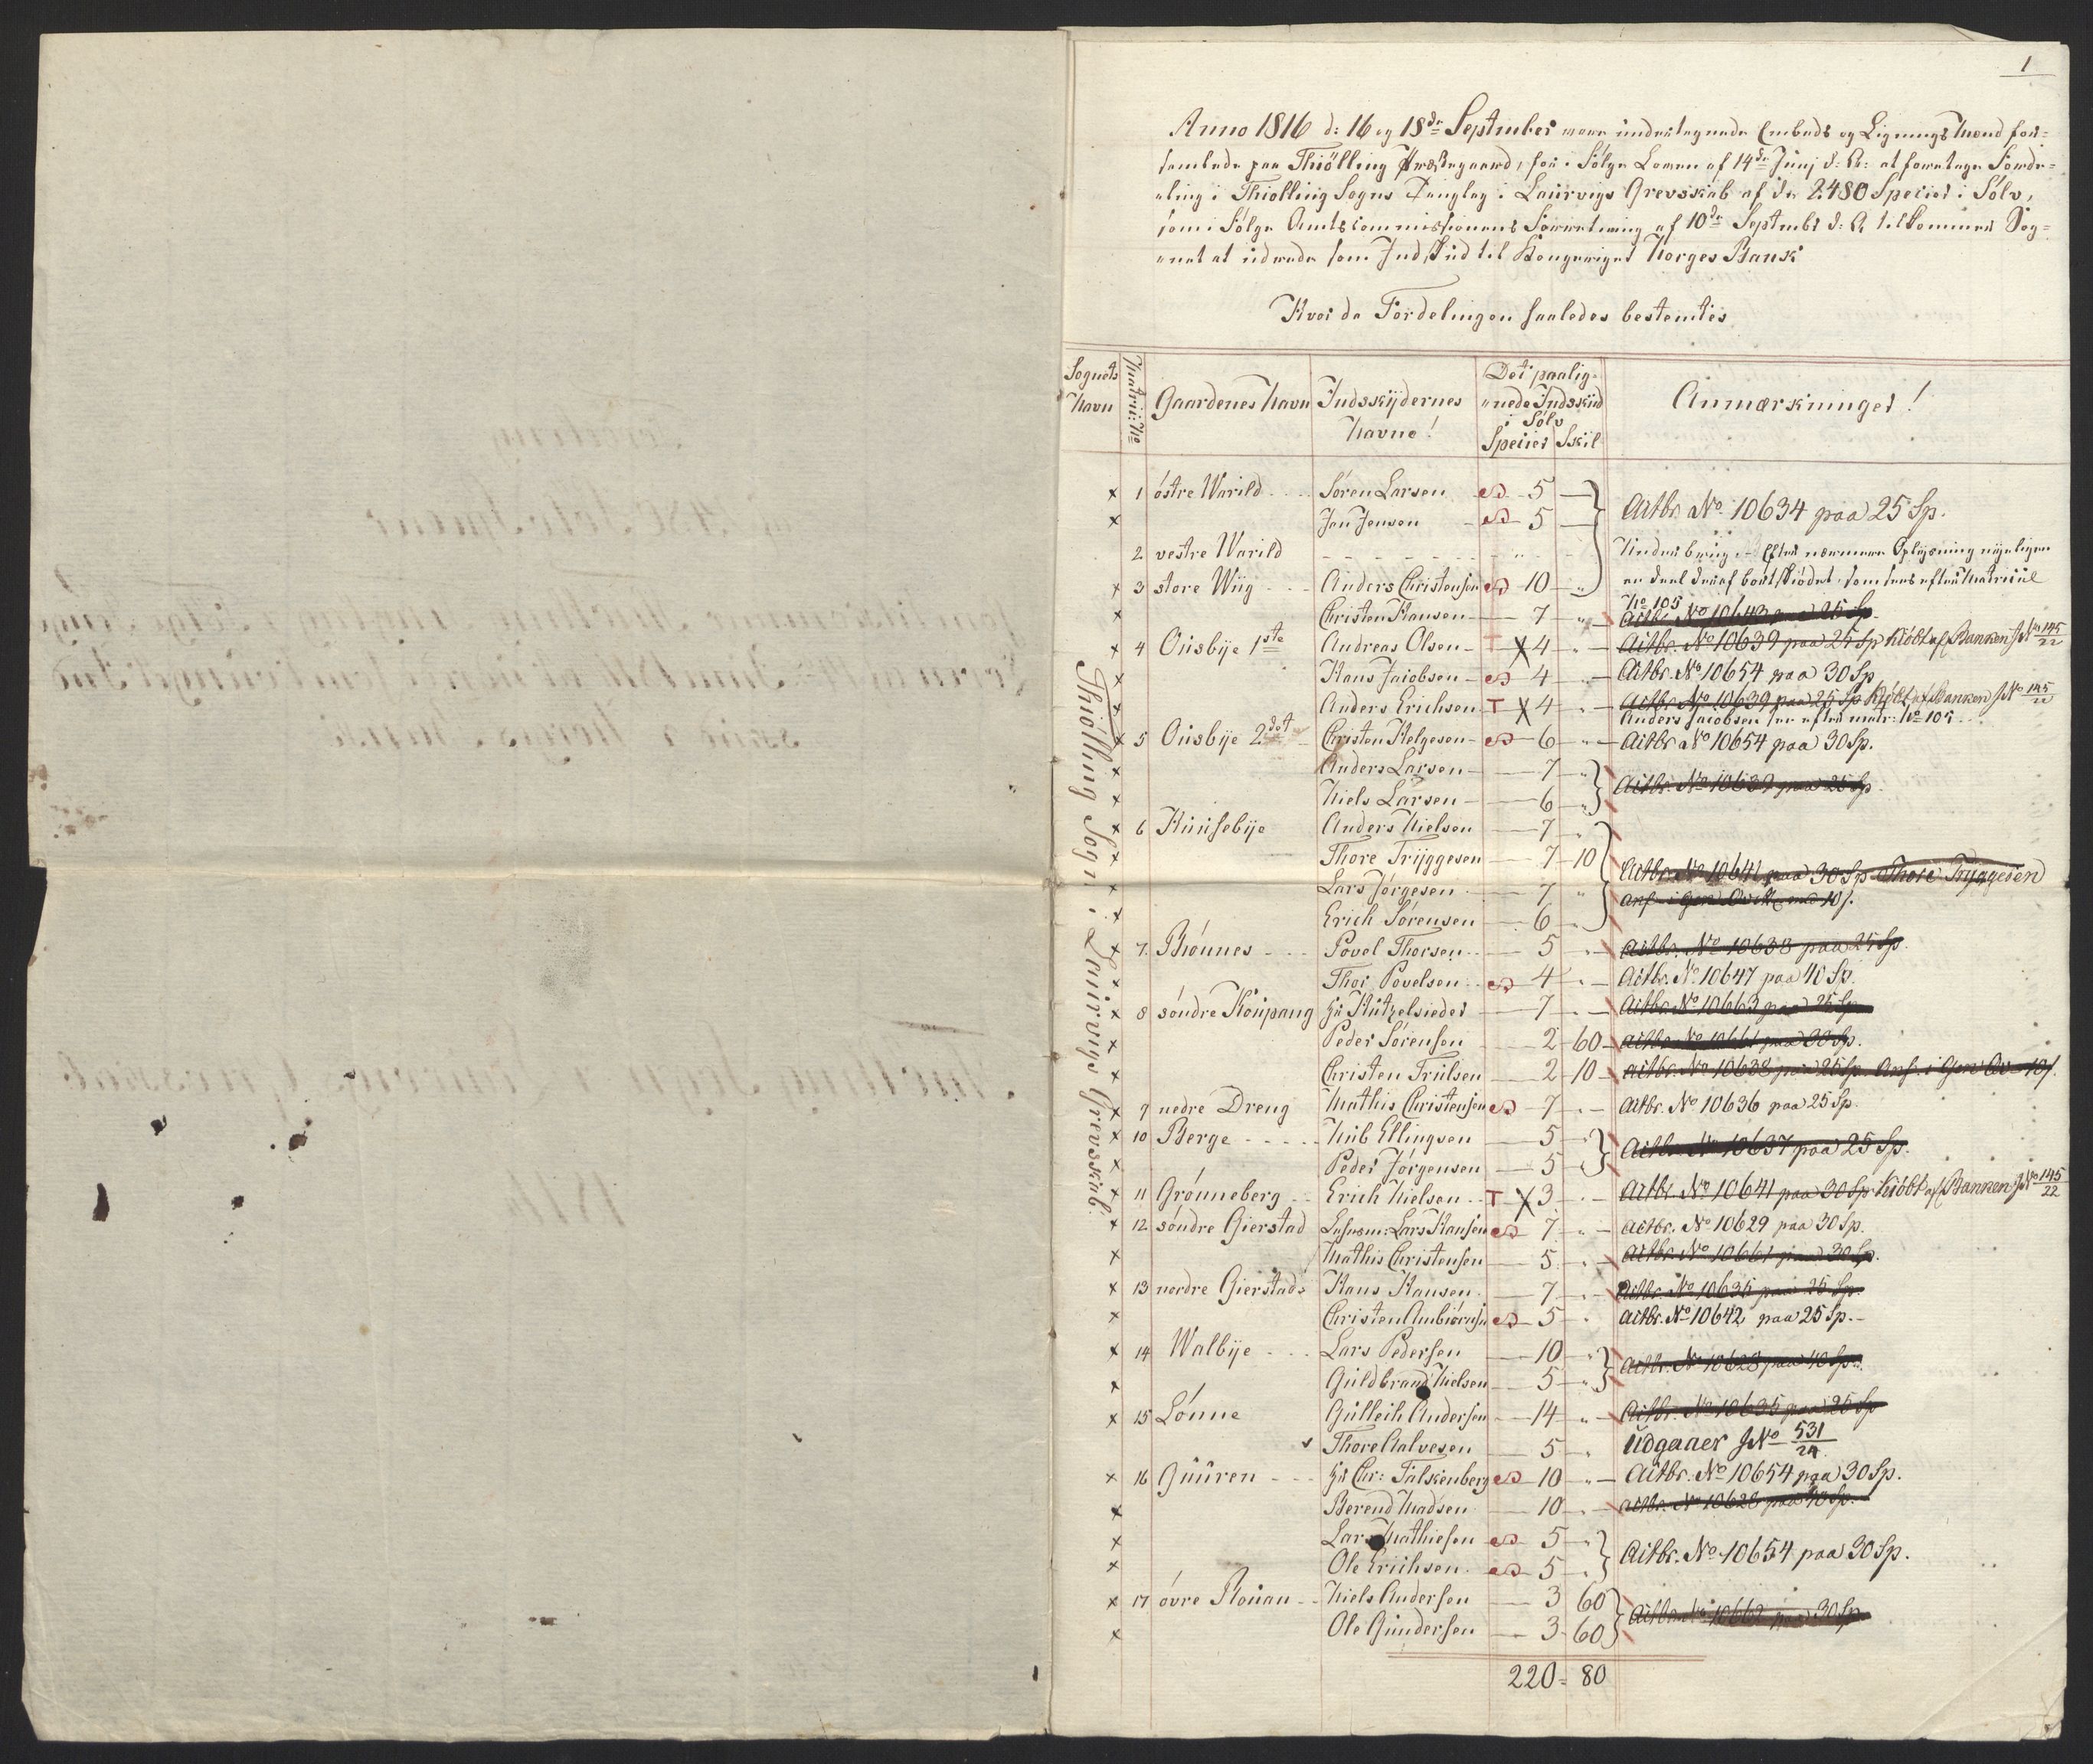 1
Anno 1816 d: 16 og 18de September vare undertegnede Embeds og Lignings Mænd for=
samlede paa Thiölling Præstegaard, for i Følge Loven af 14de Junj d: A: at foretage Forde=
eling i Thiølling Sogns Tinglag i Laurvigs Grevskab af de 2480 Species i Sølv,
som i Følge Amtscommissionens Forretning af 10de Septembr d: A tilkommer Sog=
net at udrede som Indskud til Kongeriget Norges Bank
Hvor da Fordelingen saaledes bestemtes
Sognets Navn
Matric: No
Gaardenes Navn
Indskydernes Navne!
Det paalignede Indskud i Sølv
Specier Skil
Anmærkninger!
Thiölling Sogn i Laurvigs Grevskab.
x 1 östre Warild Søren Larsen 5 Actbr. No 10634 paa 25 Sp.
x Jon Jensen 5
2 vestre Warild Efter nærmere Oplysning nyeligen
x 3 store Wiig Anders Christensen 10 en deel deraf bortskiødet, som sees efter Matricul
No 105
x Christen Hansen 7 Actbr No 10643 paa 25 Sp
x 4 Ousbÿe 1ste Andreas Olsen T X 4 Actbr. No 10639 paa 25 Sp Kiöbt af Banken J No 145/22
x Hans Jacobsen 4 Actbr. No 10654 paa 30 Sp
x Anders Erichsen T X 4 Actbr. No 10639 paa 25 Sp Kiöbt af Banken J No 145/22
Anders Jacobsen see efter matr: No 105
x 5 Ousbÿe 2det Christen Helgesen 6 Actbr No 10654 paa 30 Sp.
x Anders Larsen 7 Actbr. No 10639 paa 25 Sp.
x Niels Larsen 6
x 6 Huusebÿe Anders Nielsen 7
x Thore Trÿggesen 7 10 Actbr. No 10641 paa 30 Sp Thore Trÿggesen
x Lars Jørgesen 7
x Erich Sørensen 6
x 7 Rhönnes Povel Thorsen 5 Actbr. No 10638 paa 25 Sp.
x Thor Povelsen 4 Actbr. No 10647 paa 40 Sp.
x 8 söndre Koupang Hr 7 Actbr. No 10663 paa 25 Sp
x Peder Sörensen 2 60 Actbr. No 10661 paa 30 Sp.
x Christen Trulsen 2 10 Actbr. No 10638 paa 25 Sp. Anf. i Gen 10 s.
x 9 nedre Dreng Mathis Christensen 7 Actbr. No 10636 paa 25 Sp.
x 10 Berge Ellingsen 5 Actbr. No 10637 paa 25 Sp.
x Peder Jörgensen 5
x 11 Grönneberg Erich Nielsen T X 3 Actbr. No 10641 paa 30 Sp. Kiöbt af Banken J No 145/22
x 12 söndre Gierstad Lars Hansen 7 Actbr. No 10629 paa 30 Sp.
x Mathis Christensen 5 Actbr. No 10661 paa 30 Sp.
x 13 nordre Gierstad Hans Hansen 7 Actbr. No 10635 paa 25 Sp.
x Christen Ambiörnsen 5 Actbr. No 10642 paa 25 Sp.
x 14 Walbÿe Lars Pedersen 10 Actbr. No 10628 paa 40 Sp.
x Guldbrand Nielsen 5
x 15 Lönne Gulleih Andersen 14 Actbr. No 10635 paa 25 Sp
Thore Aalvesen 5 Udgaaer J No 531/24
x 16 Guuren Hr Chr: Falkenberg 10 Actbr. No 10654 paa 30 Sp.
x Berend Madsen 10 Actbr. No 10628 paa 40 Sp.
x Lars Mathiesen 5 Actbr. No 10654 paa 30 Sp.
x Ole Erichsen 5
x 17 övre Rouan Niels Andersen 3 60 Actbr. No 10662 paa 30 Sp.
x Ole Gundersen 3 60
220 = 80